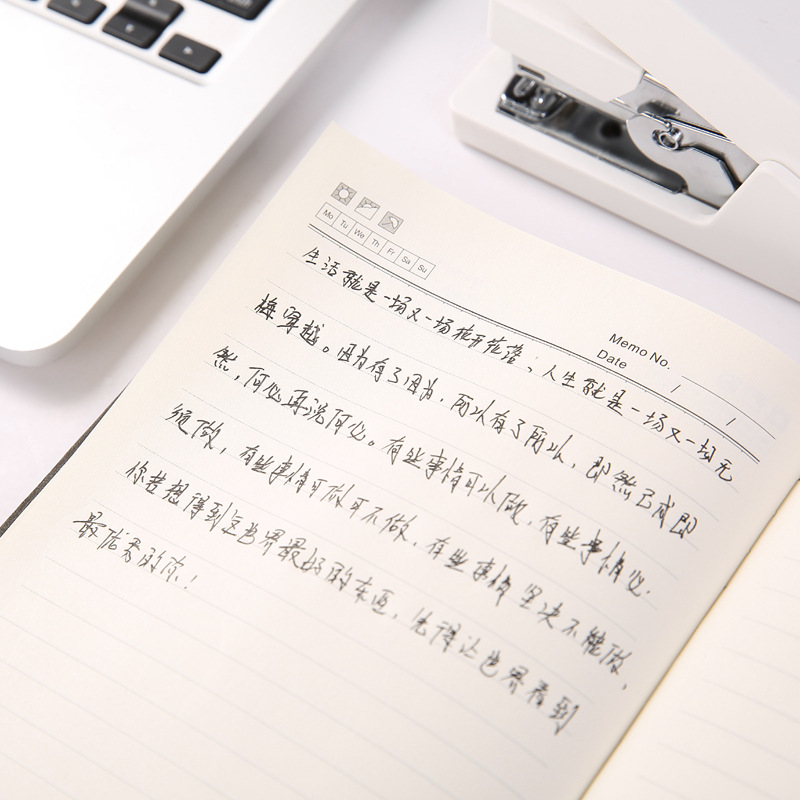 Mo Tu We Th Fr Sa Su
Memo No.
Date / /
生活就是一场又一场花开花落；人生就是一场又一场无
悔穿越。因为有了因为，所以有了所以，即然已成即
然，何必再说何必。有些事情可以做，有些事情必
须做，有些事情可做可不做，有些事情坚决不能做，
你若想得到这世界最好的东西，先得让世界看到
最优秀的你！